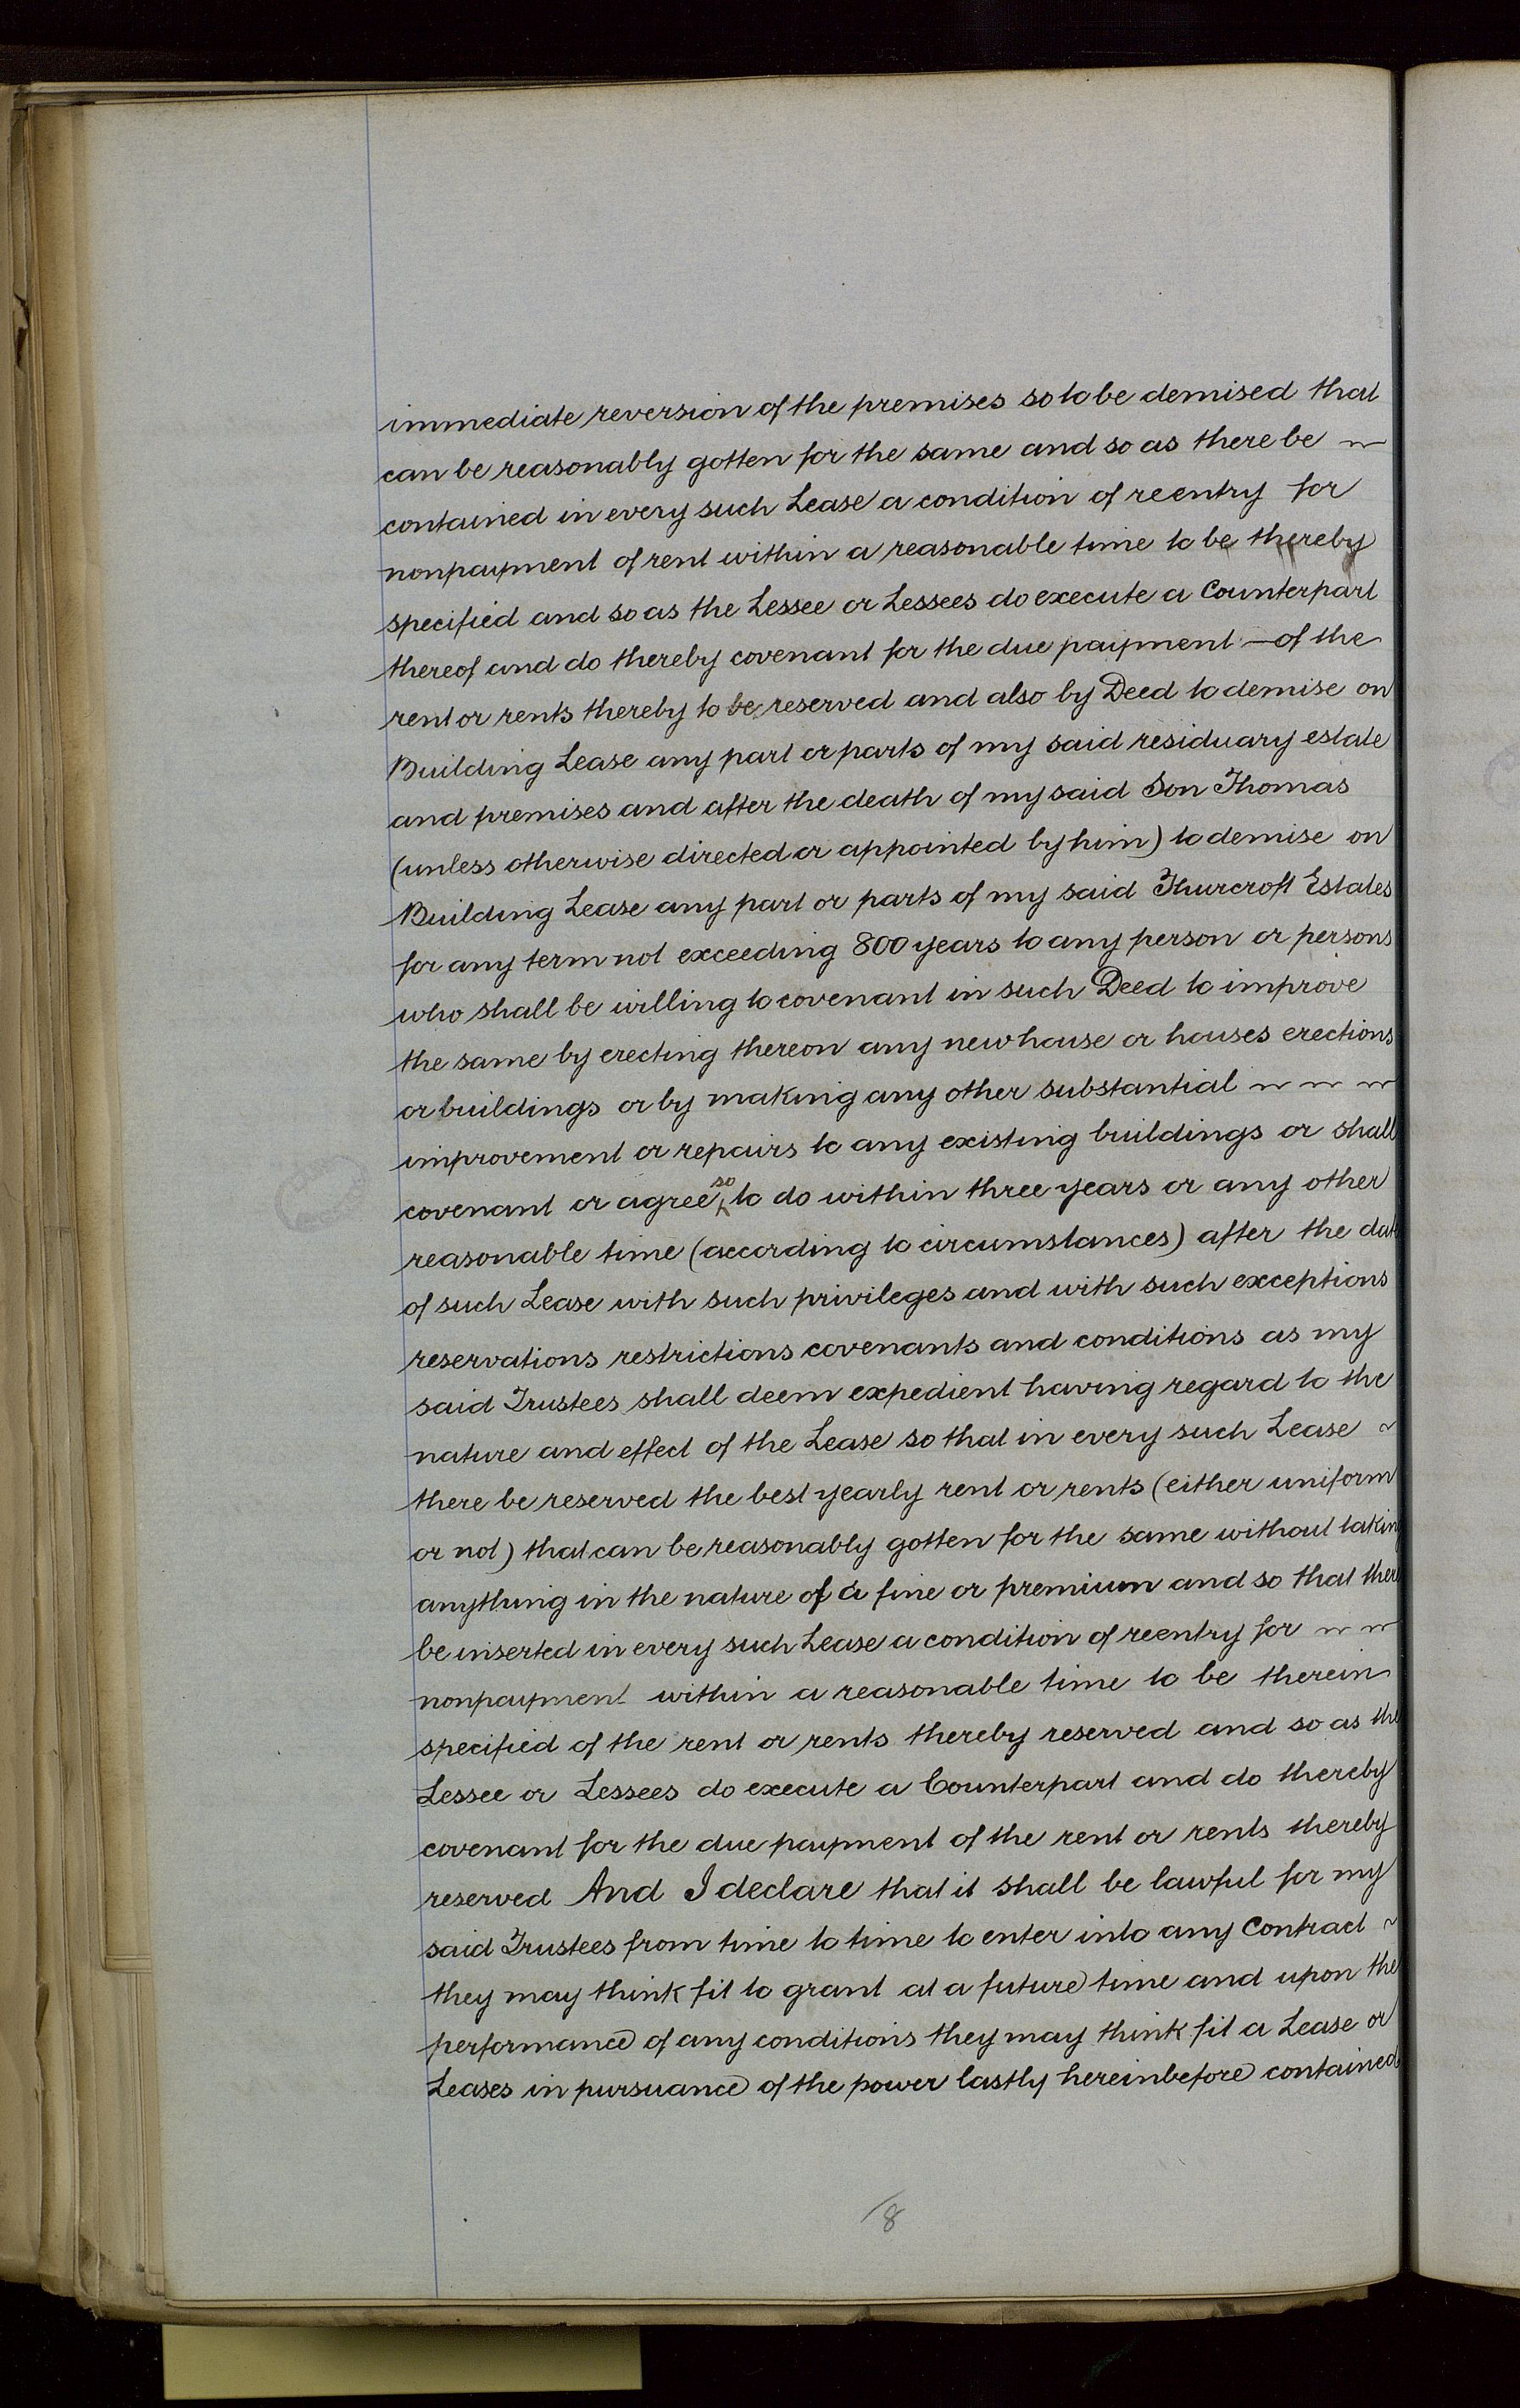 immediate reversion of the premises so to be demised that
can be reasonably gotten for the same and so as there be ~
contained in every such Lease a condition of reentry for
nonpayment of rent within a reasonable time to be thereby
specified and so as the Lessee or Lessees do execute a Counterpart
thereof and do thereby covenant for the due payment — of the
rent or rents thereby to be reserved and also by Deed to demise on
Building Lease any part or parts of my said residuary estate
and premises and after the death of my said Son Thomas
(unless otherwise directed or appointed by him) to demise on
Building Lease any part or parts of my said Thurcroft Estates
for any term not exceeding 800 years to any person or persons
who shall be willing to covenant in such Deed to improve
the same by erecting thereon any new house or houses erections
or buildings or by making any other substantial ~ ~ ~
improvement or repairs to any existing buildings or shall
covenant or agree so to do within three years or any other
reasonable time (according to circumstances) after the dat
of such Lease with such privileges and with such exceptions
reservations restrictions covenants and conditions as my
said Trustees shall deem expedient having regard to the
nature and effect of the Lease so that in every such Lease ~
there be reserved the best yearly rent or rents (either uniform
or not) that can be reasonably gotten for the same without taking
anything in the nature of a fine or premium and so that there
be inserted in every such Lease a condition of reentry for ~ ~
nonpayment within a reasonable time to be therein
specified of the rent or rents thereby reserved and so as the
Lessee or Lessees do execute a Counterpart and do thereby
covenant for the due payment of the rent or rents thereby
reserved And I declare that it shall be lawful for my
said Trustees from time to time to enter into any Contract ~
they may think fit to grant at a future time and upon the
performance of any conditions they may think fit a Lease or
Leases in pursuance of the power lastly hereinbefore contained
18